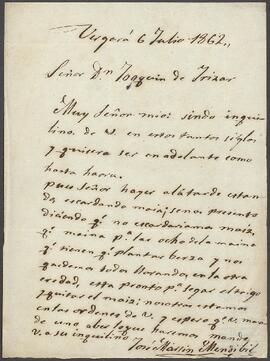 Vergará 6 Julio 1862,,
Señor Dn Joaquin de Irizar
Muy Señor mio: siendo inqui
lino de V. en estos tantos siglos
y quisiera ser en adelante como
hasta haora.
pues Señor hayer alatarde estan
do, escardando maiz; senos presento
diciendo qe no escardariamos maiz,
qe maina pa las ocho dela maina
qe tienen qe plantar berza y nos
quedemos todo llorando, en la otra
eredad, esta pronto pa segar el trigo
y quitas el maiz; nosotros estamos
en las ordenes de V. y espero qe V. mara
de uno aber logue hacemos, mande
V. a su inquilino Jose Martin Mendibil